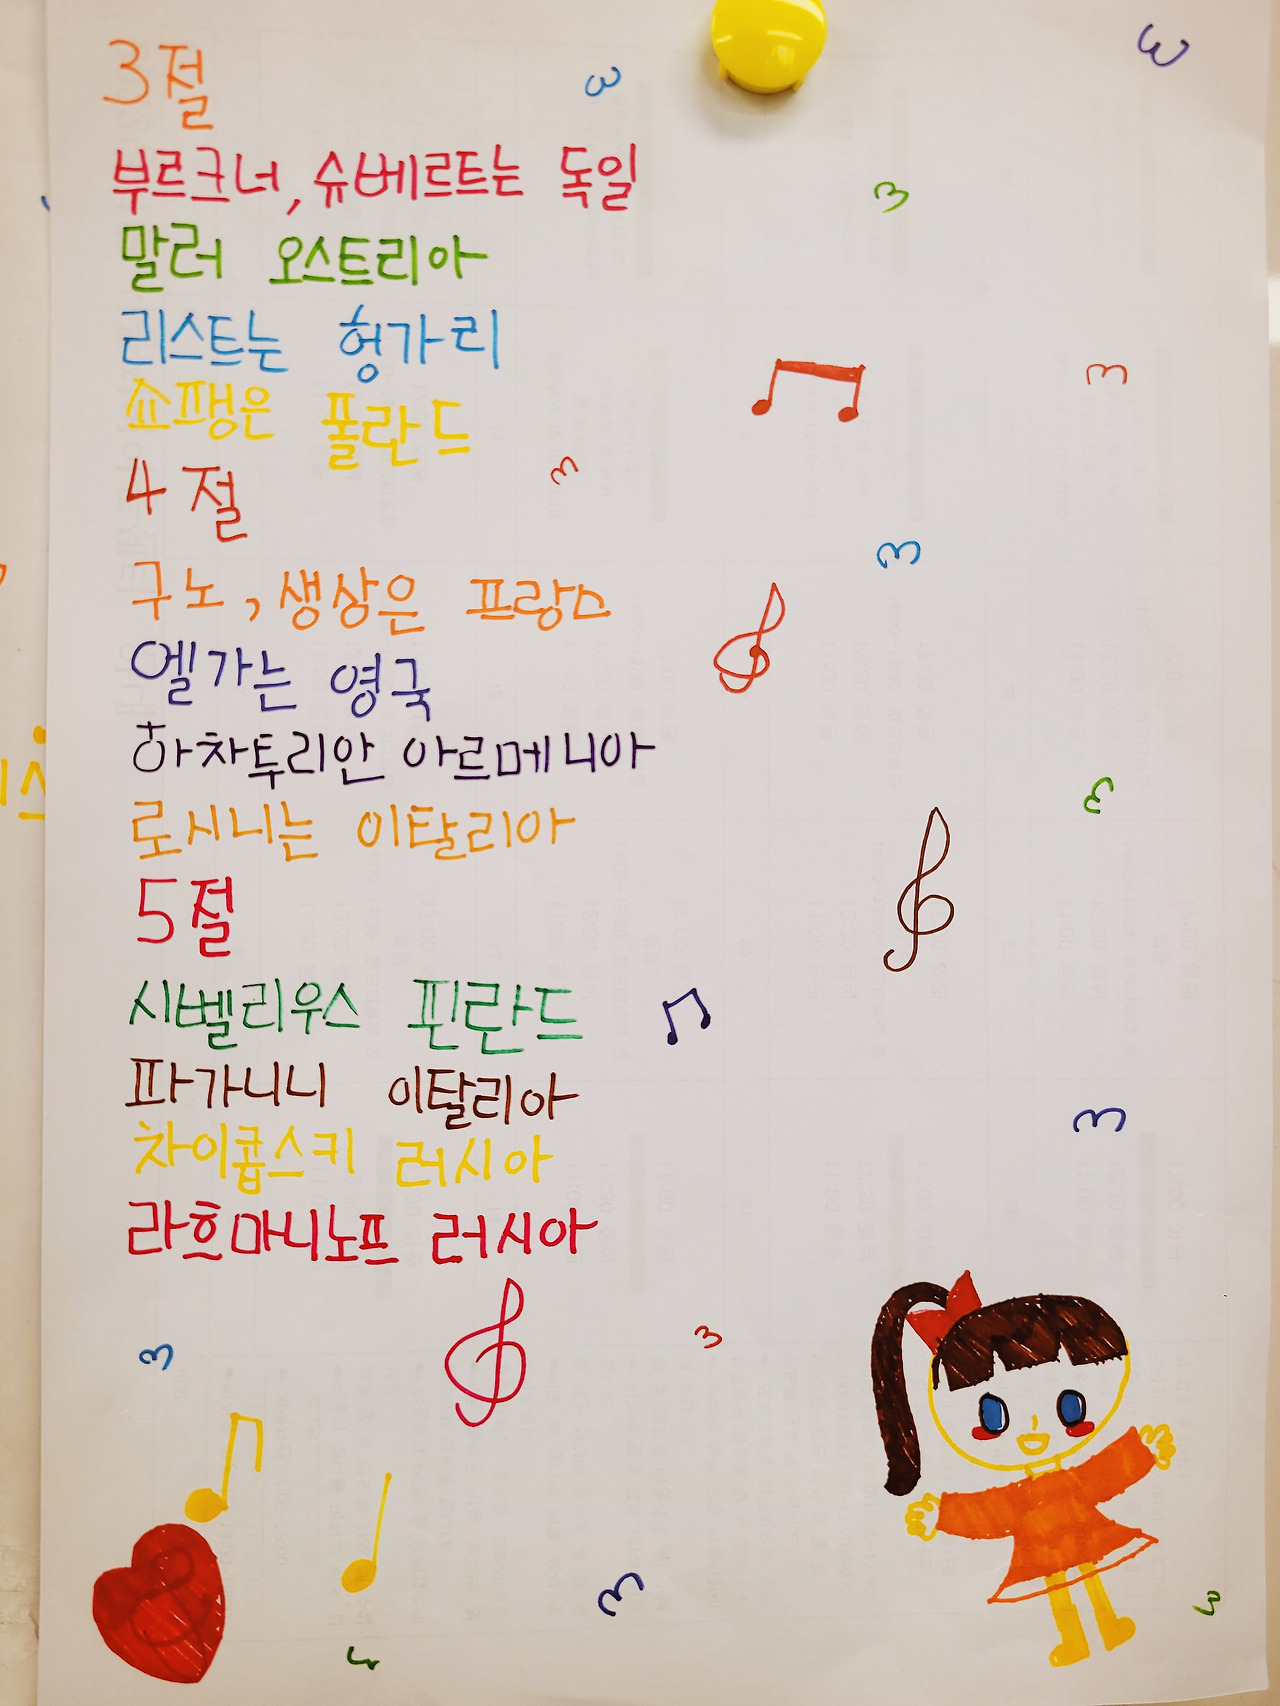 3절
부르크너, 슈베르트는 독일
말러 오스트리아
리스트는 헝가리
쇼팽은 폴란드
4절
구노, 생상은 프랑스
엘가는 영국
하차투리안 아르메니아
로시니는 이탈리아
5절
시벨리우스 핀란드
파가니니 이탈리아
차이콥스키 러시아
라흐마니노프 러시아